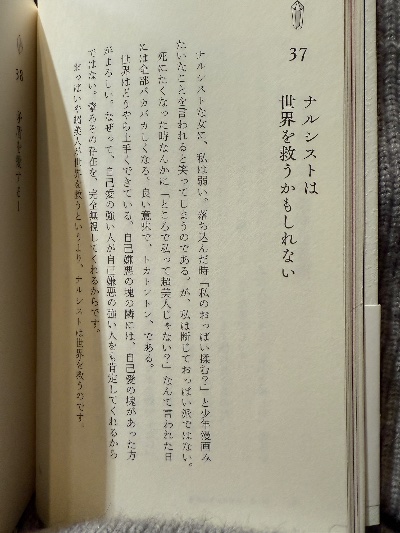 37
ナルシストは
世界を救うかもしれない
ナルシストな女に、私は弱い。落ち込んだ時「私のおっぱい揉む?」と少年漫画み
たいなことを言われると笑ってしまうのである。が、私は断じておっぱい派ではない。
死にたくなった時なんかに「ところで私って超美人じゃない?」なんて言われた日
には全部バカバカしくなる。良い意味で、トカトントン、である。
世界はどうやら上手くできている。自己嫌悪の塊の隣には、自己愛の塊があった方
がよろしい。なぜって、自己愛の強い人が自己嫌悪の強い人をも肯定してくれるから
ではない。寧ろその存在を、完全無視してくれるからです。
おっぱいや超美人が世界を救うというより、ナルシストは世界を救うのです。
38